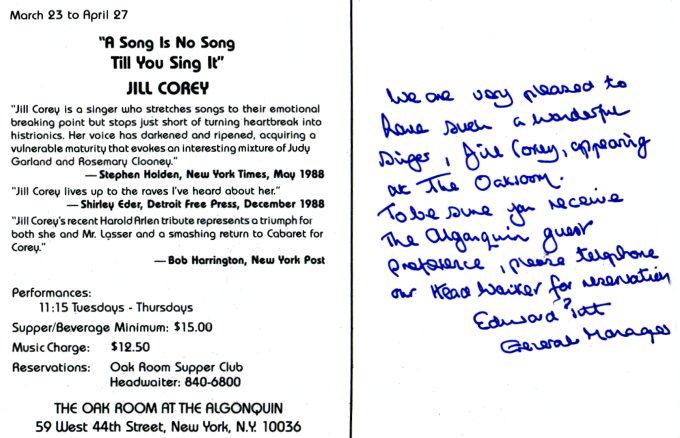 March 23 to April 27
"A Song Is No Song
Till You Sing It"
JILL COREY
"Jill Corey is a singer who stretches songs to their emotional
breaking point but stops just short of turning heartbreak into
histrionics. Her voice has darkened and ripened, acquiring a
vulnerable maturity that evokes an interesting mixture of Judy
Garland and Rosemary Clooney."
— Stephen Holden, New York Times, May 1988
"Jill Corey lives up to the raves I've heard about her."
— Shirley Eder, Detroit Free Press, December 1988
"Jill Corey's recent Harold Arlen tribute represents a triumph for
both she and Mr. Lasser and a smashing return to Cabaret for
Corey."
— Bob Harrington, New York Post
Performances:
11:15 Tuesdays - Thursdays
Supper/Beverage Minimum: $15.00
Music Charge: $12.50
Reservations: Oak Room Supper Club
Headwaiter: 840-6800
THE OAK ROOM AT THE ALGONQUIN
59 West 44th Street, New York, N.Y. 10036
We are very pleased to
have such a wonderful
singer, Jill Corey, appearing
at The Oakroom.
To be sure you receive
The Algonquin guest
preference, please telephone
our Head Waiter for reservation
Edward
General Manager